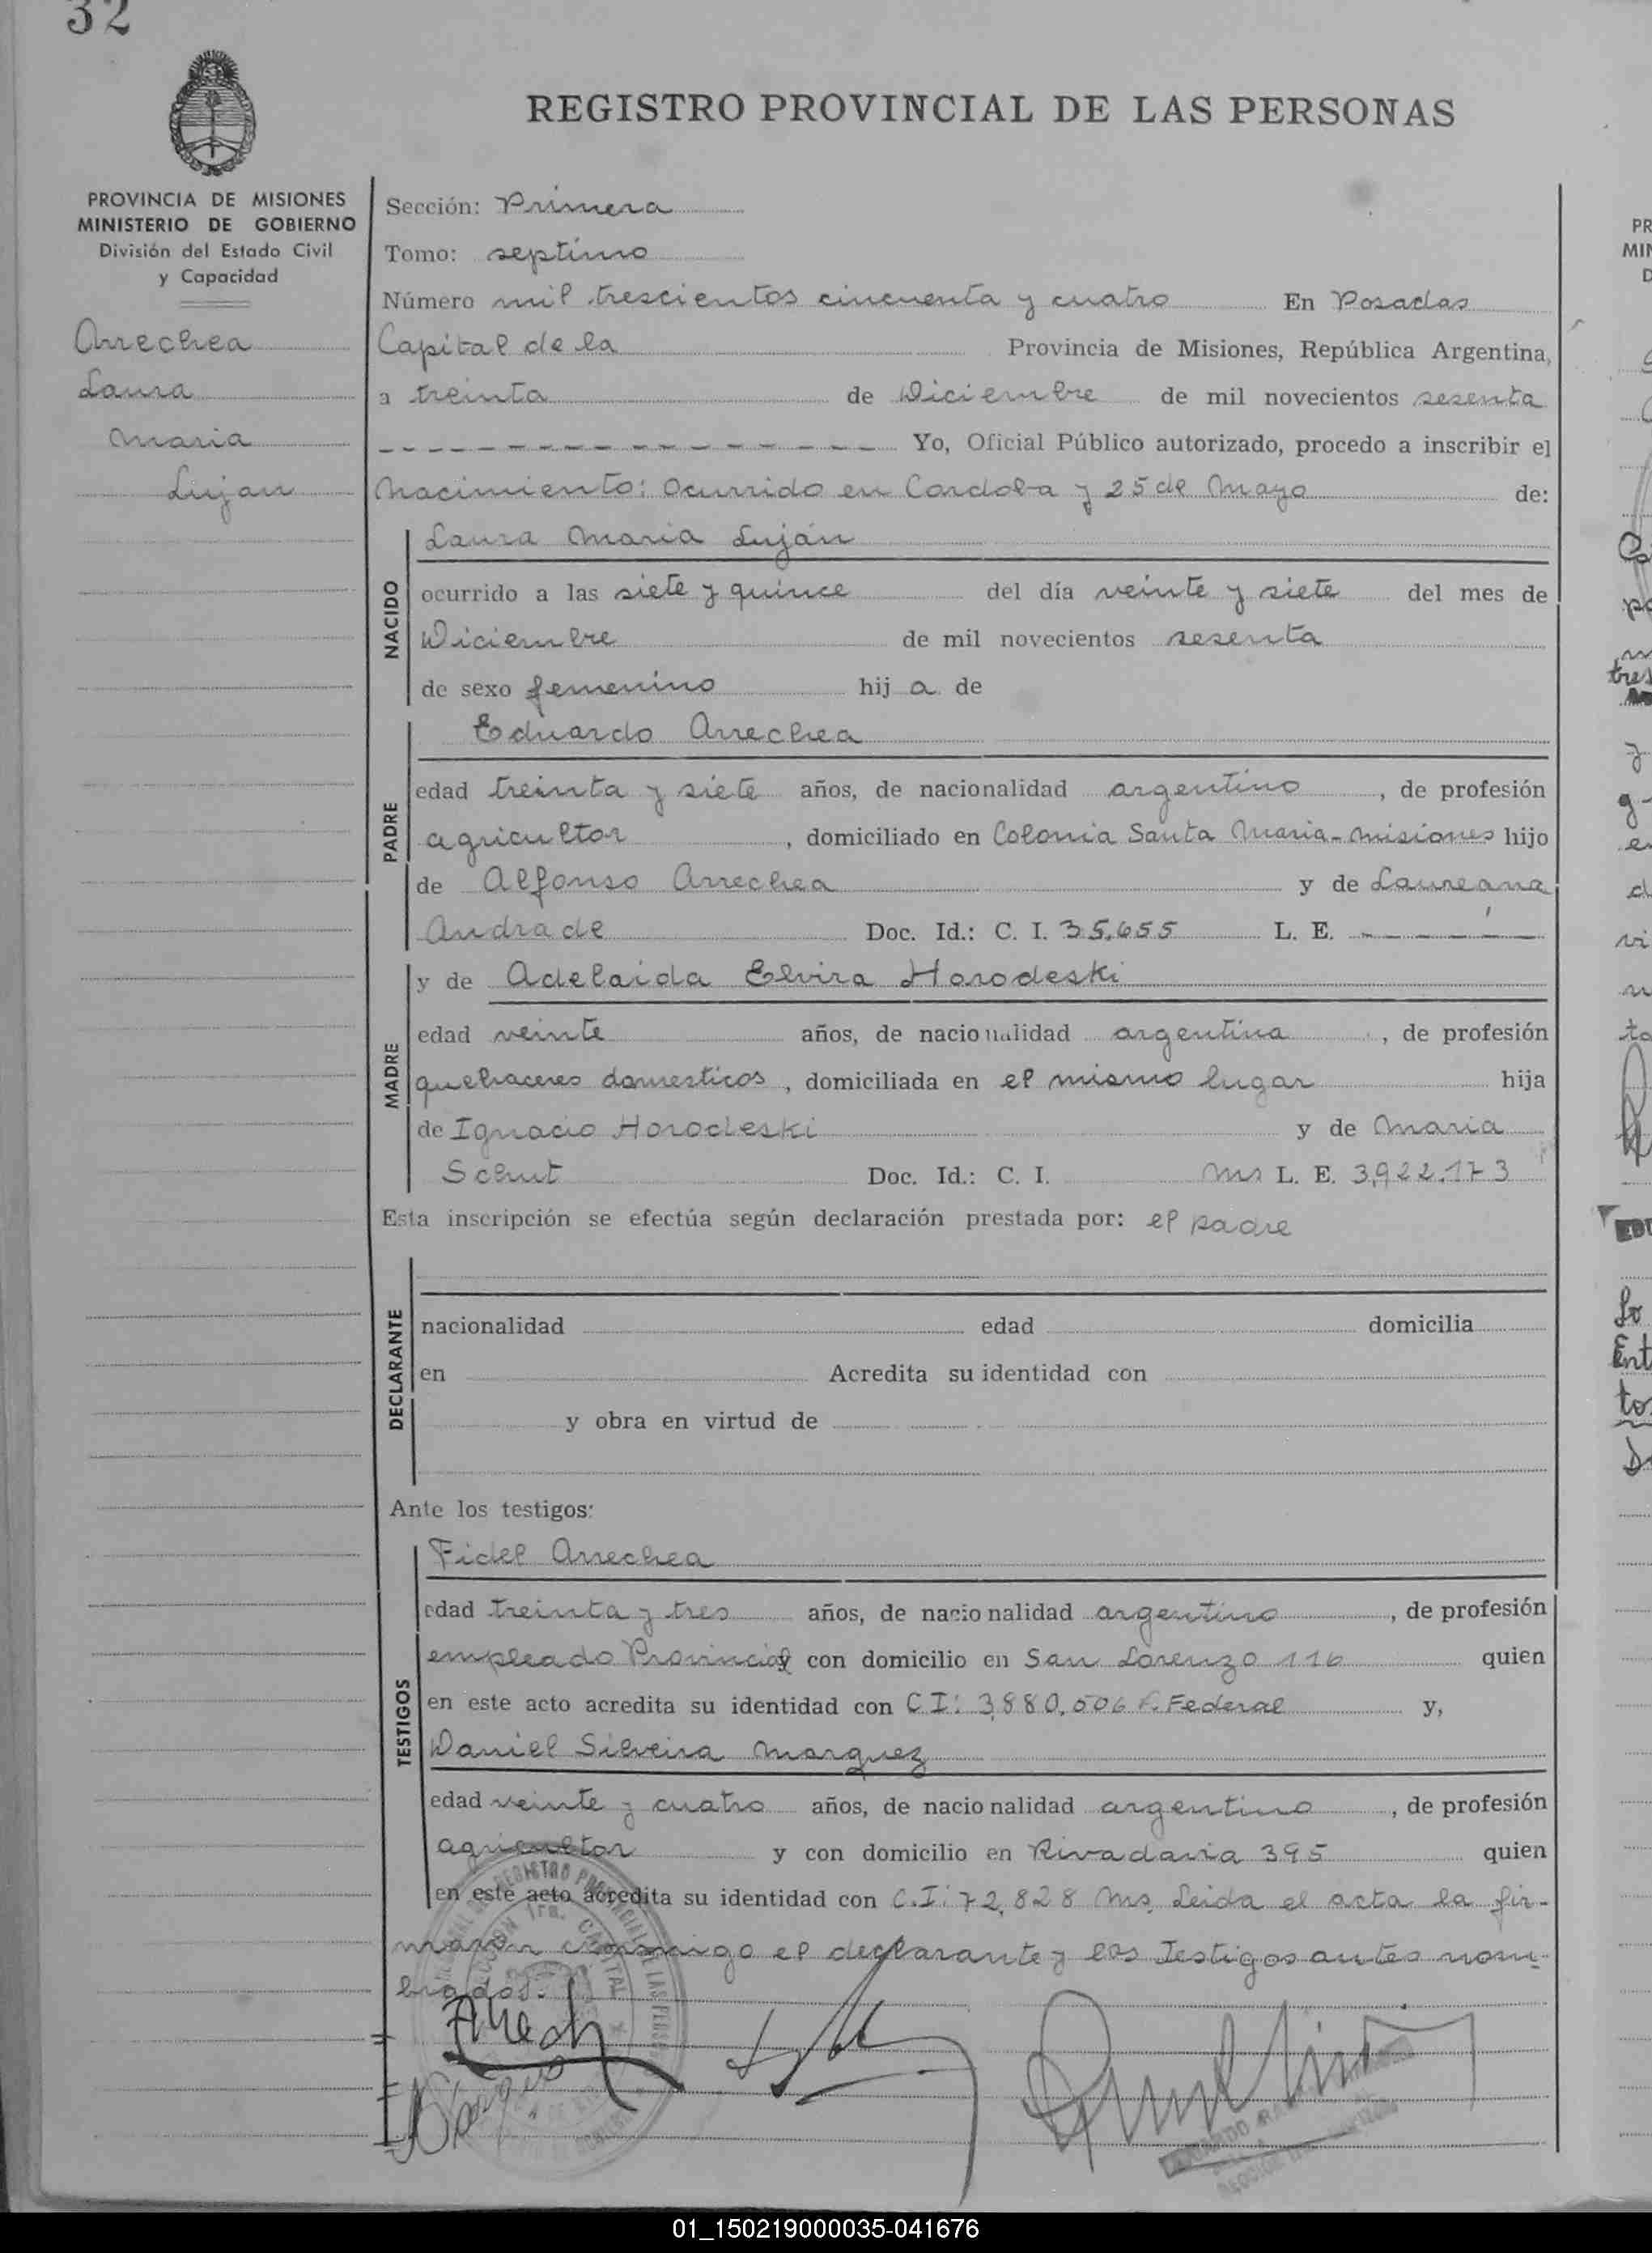 32
REGISTRO PROVINCIAL DE LAS PERSONAS
PROVINCIA DE MISIONES
MINISTERIO DE GOBIERNO
División del Estado Civil
y Capacidad
Arrechea
Laura
Maria
Lujan
Sección: Primera
Tomo: septimo
Número mil trescientos cincuenta y cuatro En Posadas
Capital de la Provincia de Misiones, República Argentina,
a treinta de Diciembre de mil novecientos sesenta
Yo, Oficial Público autorizado, procedo a inscribir el
Nacimiento: Ocurrido en Cordoba y 25 de Mayo de:
NACIDO
Laura Maria Luján
ocurrido a las siete y quince del día veinte y siete del mes de
Diciembre de mil novecientos sesenta
de sexo femenino hija de
PADRE
Eduardo Arrechea
edad treinta y siete años, de nacionalidad argentino, de profesión
agricultor, domiciliado en Colonia Santa Maria-Misiones hijo
de Alfonso Arrechea y de Laureana
Andrade Doc. Id.: C. I. 35.655 L. E. - - - - -
MADRE
y de Adelaida Elvira Horodeski
edad veinte años, de nacionalidad argentina, de profesión
quehaceres domesticos, domiciliada en el mismo lugar hija
de Ignacio Horodeski y de Maria
Schut Doc. Id.: C. I. Ms L. E. 3,922.173
Esta inscripción se efectúa según declaración prestada por: el padre
DECLARANTE
nacionalidad edad domicilia
en Acredita su identidad con
y obra en virtud de
Ante los testigos:
TESTIGOS
Fidel Arrechea
edad treinta y tres años, de nacionalidad argentino, de profesión
empleado Provincial y con domicilio en San Lorenzo 116 quien
en este acto acredita su identidad con C I: 3,880,506 P. Federal y,
Daniel Silveira Marquez
edad veinte y cuatro años, de nacionalidad argentino, de profesión
agricultor y con domicilio en Rivadavia 395 quien
en este acto acredita su identidad con C.I: 72,828 Ms. Leida el acta la fir-
maron conmigo el declarante y los Testigos antes nom-
brados.
01_150219000035-041676